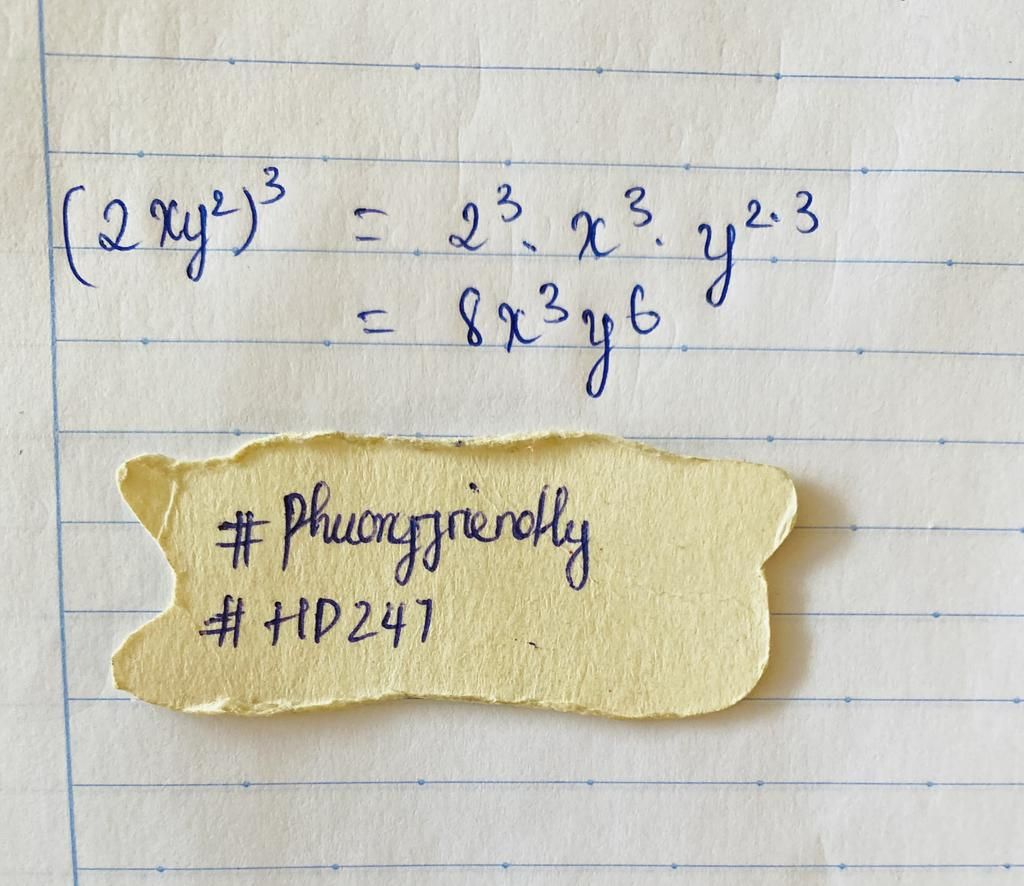 (2xy²)³ = 2³. x³. y²·³
= 8x³y⁶
# Phuongfriendly
# HD247